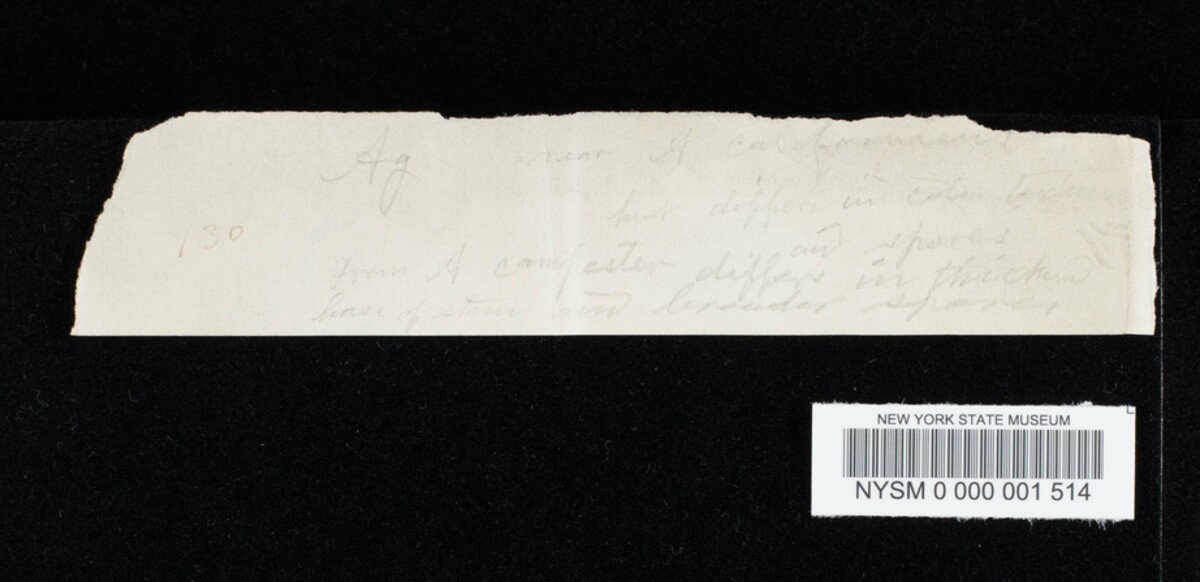 Ag near A californicus
but differs in color texture
130 and spores
From A campester differs in thickened
base of stem and broader spores
NEW YORK STATE MUSEUM
NYSM 0 000 001 514